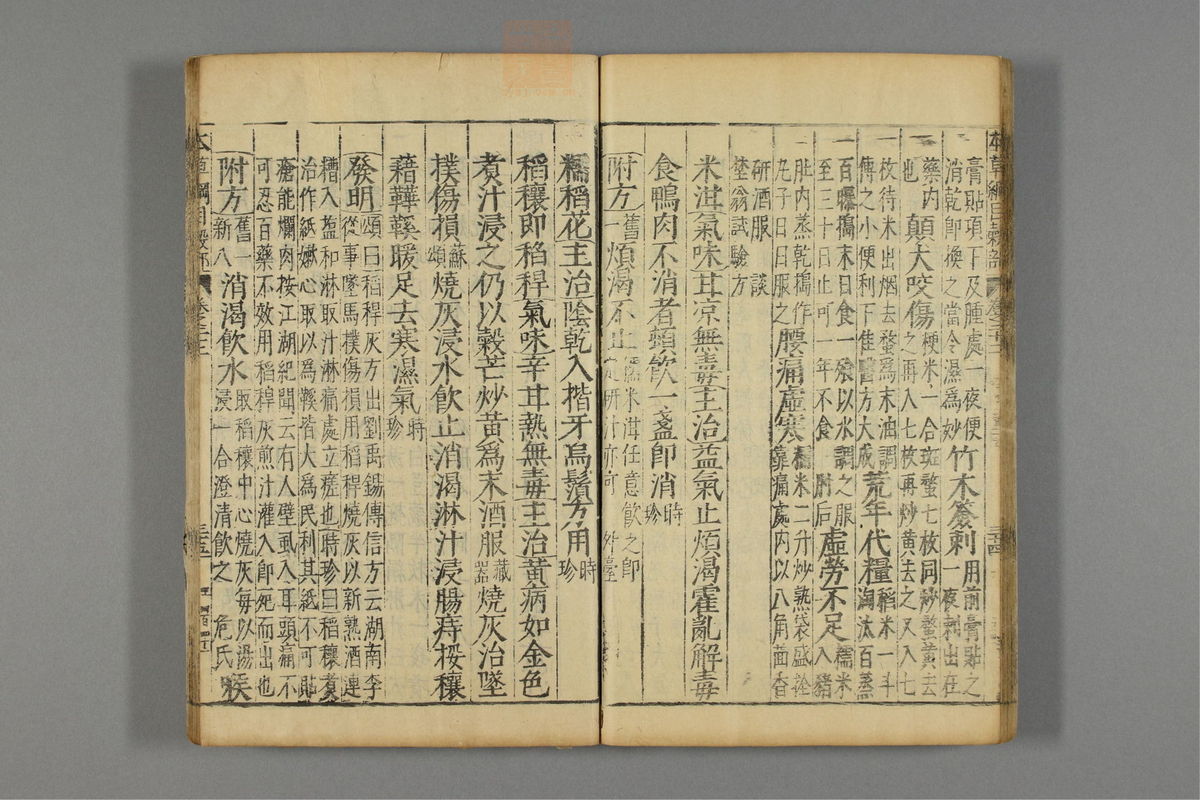 本草綱目穀部 卷之二十二 三十四
膏貼項下及腫處一夜便消乾即換之當令濕為妙竹木簽刺用前膏貼之一夜刺出在
藥内也顛犬咬傷梗米一合斑蝥七枚同炒蝥黄去之再入七枚再炒黄去之又入七
枚待米出烟去蝥為末油調傅之小便利下佳醫方大成荒年代糧稻米一斗淘汰百蒸
百曝搗末日食一飱以水調之服至三十日止可一年不食肘后虛勞不足糯米入豬
肚内蒸乾搗作丸子日日服之腰痛虛寒糯米二升炒熟袋盛拴靠痛處内以八角茴香
研酒服談埜翁試驗方
米泔氣味甘凉無毒主治益氣止煩渴霍亂解毒
食鴨肉不消者頓飲一盞即消時珍
附方舊一煩渴不止糯米泔任意飲之即定研汁亦可外臺
糯稻花主治陰乾入揩牙烏鬚方用時珍
稻穰即稻稈氣味辛甘熱無毒主治黄病如金色
煮汁浸之仍以穀芒炒黄為末酒服藏器燒灰治墜
撲傷損蘇頌燒灰浸水飲止消渴淋汁浸腸痔挼穰
藉鞾鞵暖足去寒濕氣時珍
發明頌曰稻稈灰方出劉禹錫傳信方云湖南李從事墜馬撲傷損用稻稈燒灰以新熟酒連
糟入鹽和淋取汁淋痛處立瘥也時珍曰稻穰煮治作紙嫩心取以為鞵皆大為民利其紙不可貼
瘡能爛肉按江湖紀聞云有人壁虱入耳頭痛不可忍百藥不效用稻稈灰煎汁灌入即死而出也
附方舊一新八消渴飲水取稻穰中心燒灰每以湯浸一合澄清飲之危氏喉
本草綱目穀部 卷之二十二 三十五